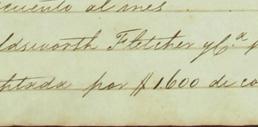 cuento al mes
ldsworth Fletcher y Cª
ptada por $1.600 de co